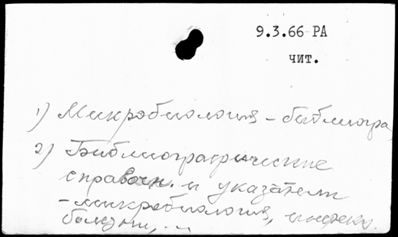 9.3.66 РА
чит.
1) Микробиология – библиогра
2) Библиографические
справочн. и указатели
– микробиология, инфекц.
болезни, ...